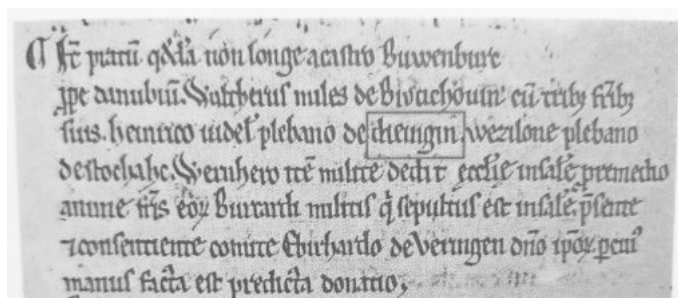 ¶ Ite pratū qdda non longe a castro Buwenburc
ppe danubiū. Waltherus miles de Biwichouin cū tribȝ frībȝ
suis. heinrico videl plebano de cheingin, wezilone plebano
de stochahc. Wernhero itē milite dedit ecclie in salē p remedio
anime fris eoꝝ Burrardi militis q̄ sepultus est in salē. psente
⁊ consentiente comite Ebirhardo de Veringen dn̄o ipoꝝ p cui᾽
manus facta est predicta donatio,